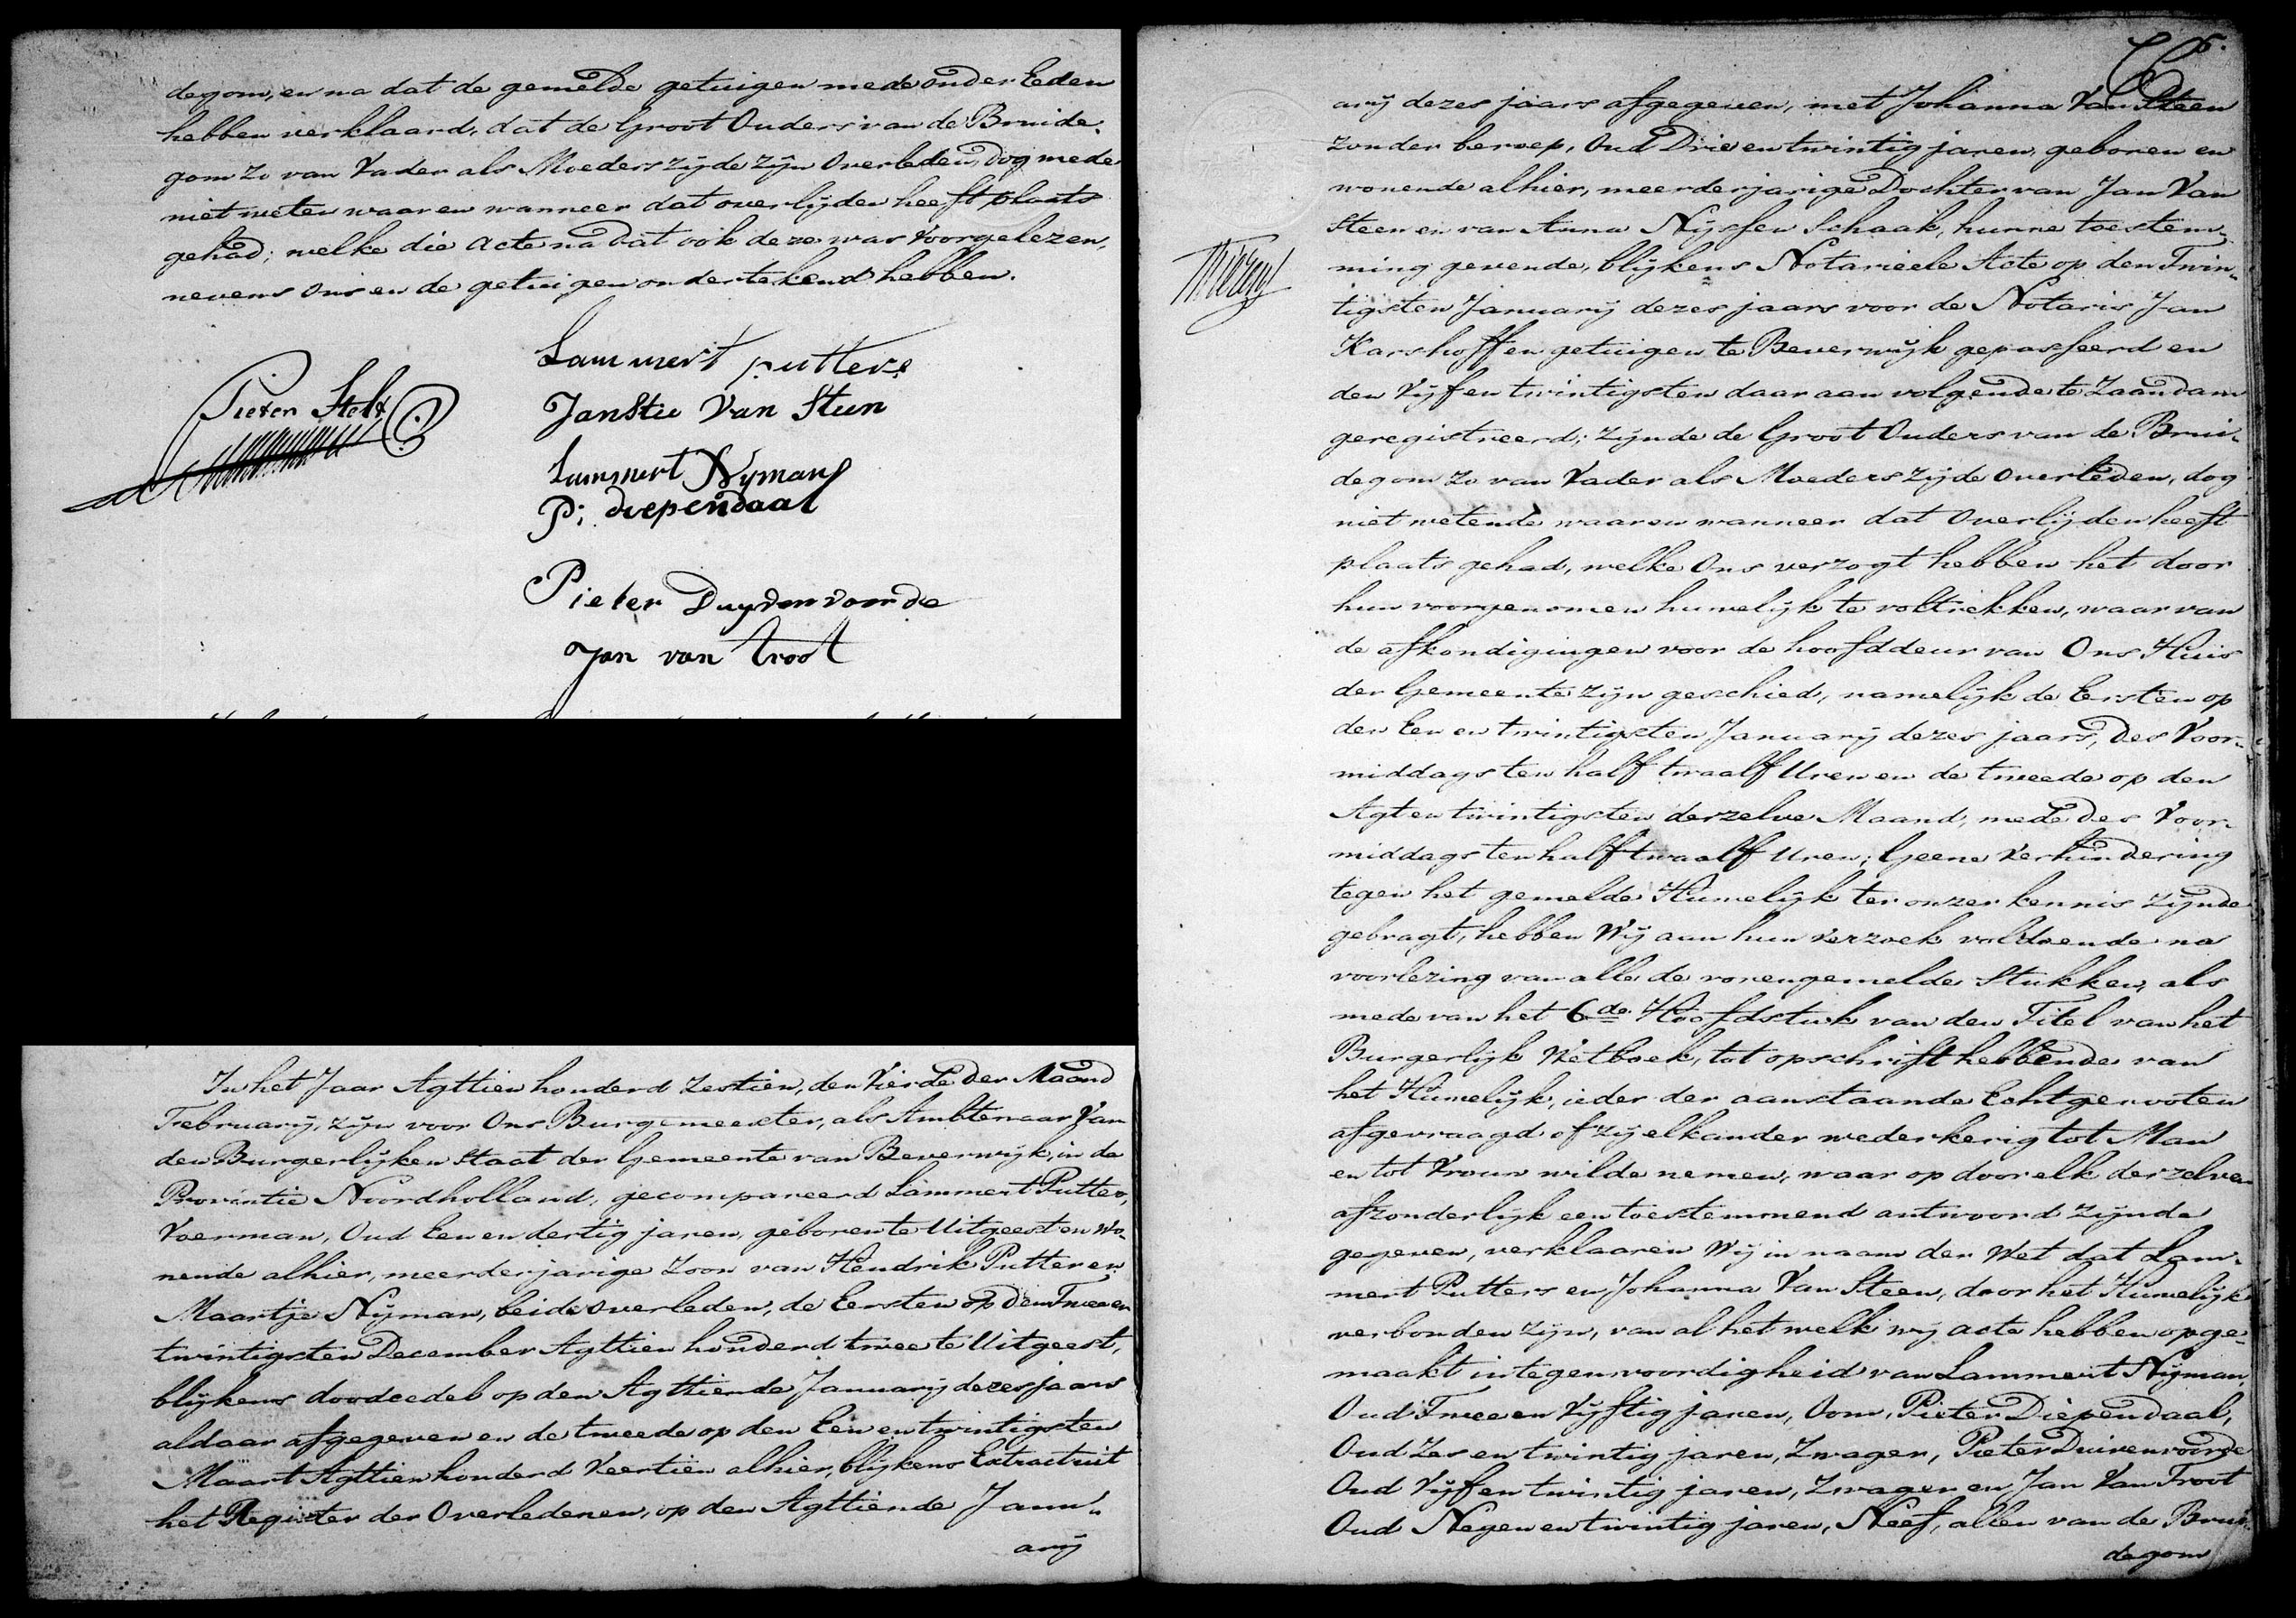 degom, en na dat de gemelde getuigen mede onder Eeden
hebben verklaard, dat de Groot Ouders van de Bruide-
gom zo van Vader als Moeders zijde zijn Overleden, dog mede
niet weten waar en wanneer dat overlijden heeft plaats
gehad; welke die acte na dat ook deze was Voorgelezen,
nevens ons en de getuigen ondertekend hebben.
Lammert putters
Pieter Stelt
Janstie Van Steen
Lammert Nijman
P: diependaal
Pieter Duyvenvoorde
Jan van troot
In het Jaar Agttien honderd zestien, den Vierde der Maand
February, zijn voor Ons Burgemeester, als Ambtenaar Van
den Burgerlijken Staat der Gemeente van Beverwijk, in de
Provintie Noordholland, gecompareerd Lammert Putter,
Voerman, Oud Een en dertig jaren, geboren te Uitgeest en wo-
nende alhier, meerderjarige Zoon van Hendrik Putter en
Maartje Nijman, beide overleden, de Eersten op den Twee en
twintigsten December Agttien honderd twee te Uitgeest,
blijkens doodcedel op den Agttiende January dezes jaars
aldaar afgegeven en de tweede op den Een en twintigsten
Maart Agttien honderd Veertien alhier, blijkens Extract uit
het Register der Overledenen, op den Agttiende Janu-
arij
6.
arij dezes jaars afgegeven, met Johanna Van Steen
zonder beroep, Oud Drie en twintig jaren, geboren en
wonende alhier, meerderjarige Dochter van Jan Van
Steen en van Anna Nijssen Schaak, hunne toestem-
ming gevende, blijkens Notarieele Acte op den Twin-
tigsten January dezes jaars voor de Notaris Jan
Karshoff en getuigen te Beverwijk gepasseerd en
den Vijf en twintigsten daar aan volgende te Zaandam
geregistreerd; zijnde de Groot Ouders van de Brui-
degom zo van Vader als Moeders zijde overleden, dog
niet wetende waar en wanneer dat Overlijden heeft
plaats gehad, welke Ons verzogt hebben het door
hun voorgenomen huwelijk te voltrekken, waar van
de afkondigingen voor de hoofddeur van Ons Huis
der Gemeente zijn geschied, namelijk de Eersten op
den Een en twintigsten January dezes jaars, des Voor-
middags ten half twaalf Uren en de tweede op den
Agt en twintigsten derzelve Maand, mede des Voor-
middags ten half twaalf Uren; Geene Verhindering
tegen het gemelde Huwelijk ter onzer kennis zijnde
gebragt, hebben Wij aan hun verzoek voldoende na
voorlezing van alle de vorengemelde Stukken, als
mede van het 6de Hoofdstuk van den Titel van het
Burgerlijk Wetboek, tot opschrift hebbende van
het Huwelijk, ieder der aanstaande Echtgenooten
afgevraagd of zij elkander wederkerig tot Man
en tot Vrouw wilde nemen, waar op door elk derzelve
afzonderlijk een toestemmend antwoord zijnde
gegeven, verklaaren Wij in naam der Wet dat Lam-
mert Putters en Johanna Van Steen, door het Huwelijk
verbonden zijn, van al het welk wij acte hebben opge-
maakt in tegenwoordigheid van Lammert Nijman,
Oud Twee en Vijftig jaren, Oom, Pieter Diependaal,
Oud Zes en twintig jaren, Zwager, Pieter Duivenvoorde
Oud Vijf en twintig jaren, Zwager en Jan Van Troot
Oud Negen en twintig jaren, Neef, allen van de Brui-
degom